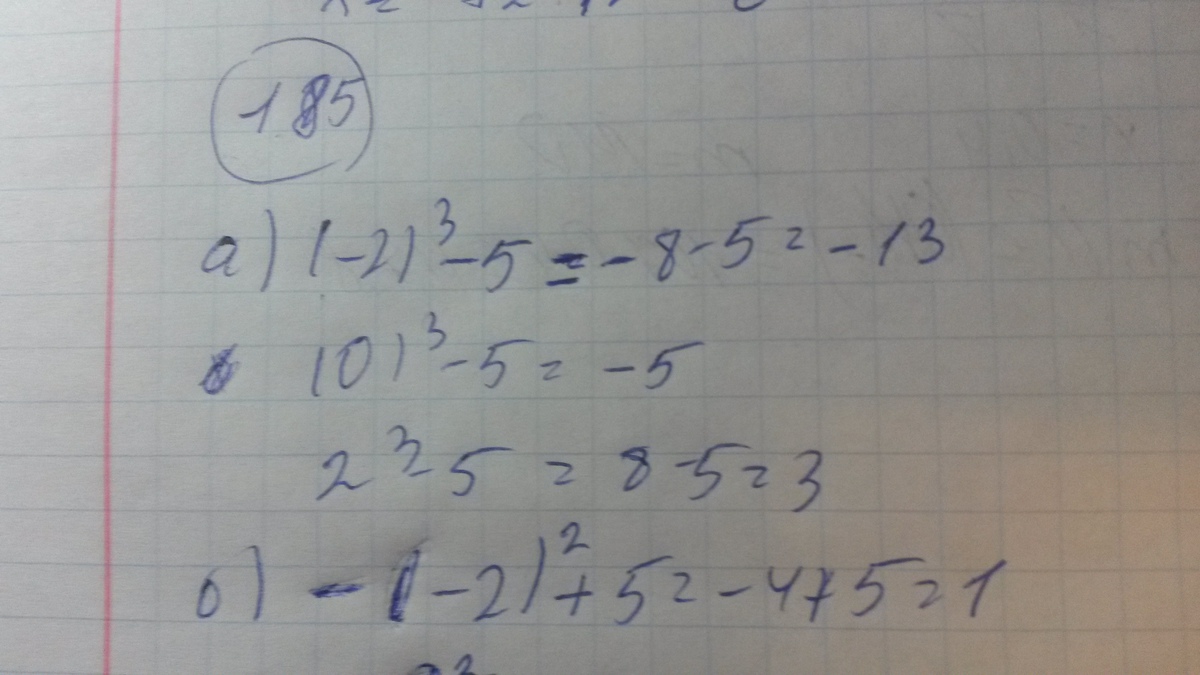 185
а) (-2)³-5=-8-5=-13
(0)³-5=-5
2³-5=8-5=3
б) -(-2)²+5=-4+5=1